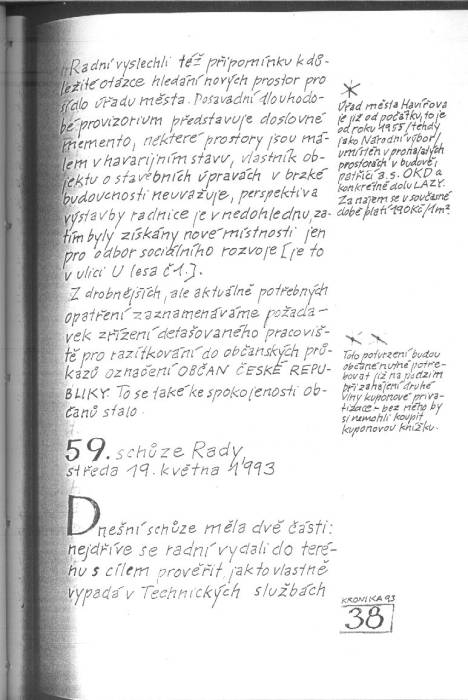 Radní vyslechli též připomínku k dů-
ležité otázce hledání nových prostor pro
sídlo úřadu města. Dosavadní dlouhodo-
bé provizorium představuje doslovné
memento, některé prostory jsou má-
lem v havarijním stavu, vlastník ob-
jektu o stavebních úpravách v brzké
budoucnosti neuvažuje, perspektiva
výstavby radnice je v nedohlednu, za-
tím byly získány nové místnosti jen
pro odbor sociálního rozvoje [je to
v ulici U lesa č 1.].
Z drobnějších, ale aktuálně potřebných
opatření zaznamenáváme požada-
vek zřízení detašovaného pracoviš-
tě pro razítkování do občanských prů-
kazů označení OBČAN ČESKÉ REPU-
BLIKY. To se také ke spokojenosti ob-
čanů stalo.
59. schůze Rady,
středa 19. května 1993
Dnešní schůze měla dvě části:
nejdříve se radní vydali do teré-
nu s cílem prověřit, jak to vlastně
vypadá v Technických službách
*
Úřad města Havířova
je již od počátku, to je
od roku 1955/tehdy
jako Národní výbor/
umístěn v pronajatých
prostorách v budově,
patřící a.s. OKD a
konkrétně dolu LAZY.
Za nájem se v současné
době platí 190Kč/1m².
**
Toto potvrzení budou
občané nutně potře-
bovat již na podzim
při zahájení druhé
vlny kuponové priva-
tizace - bez něho by
si nemohli koupit
kuponovou knížku.
KRONIKA 93
38